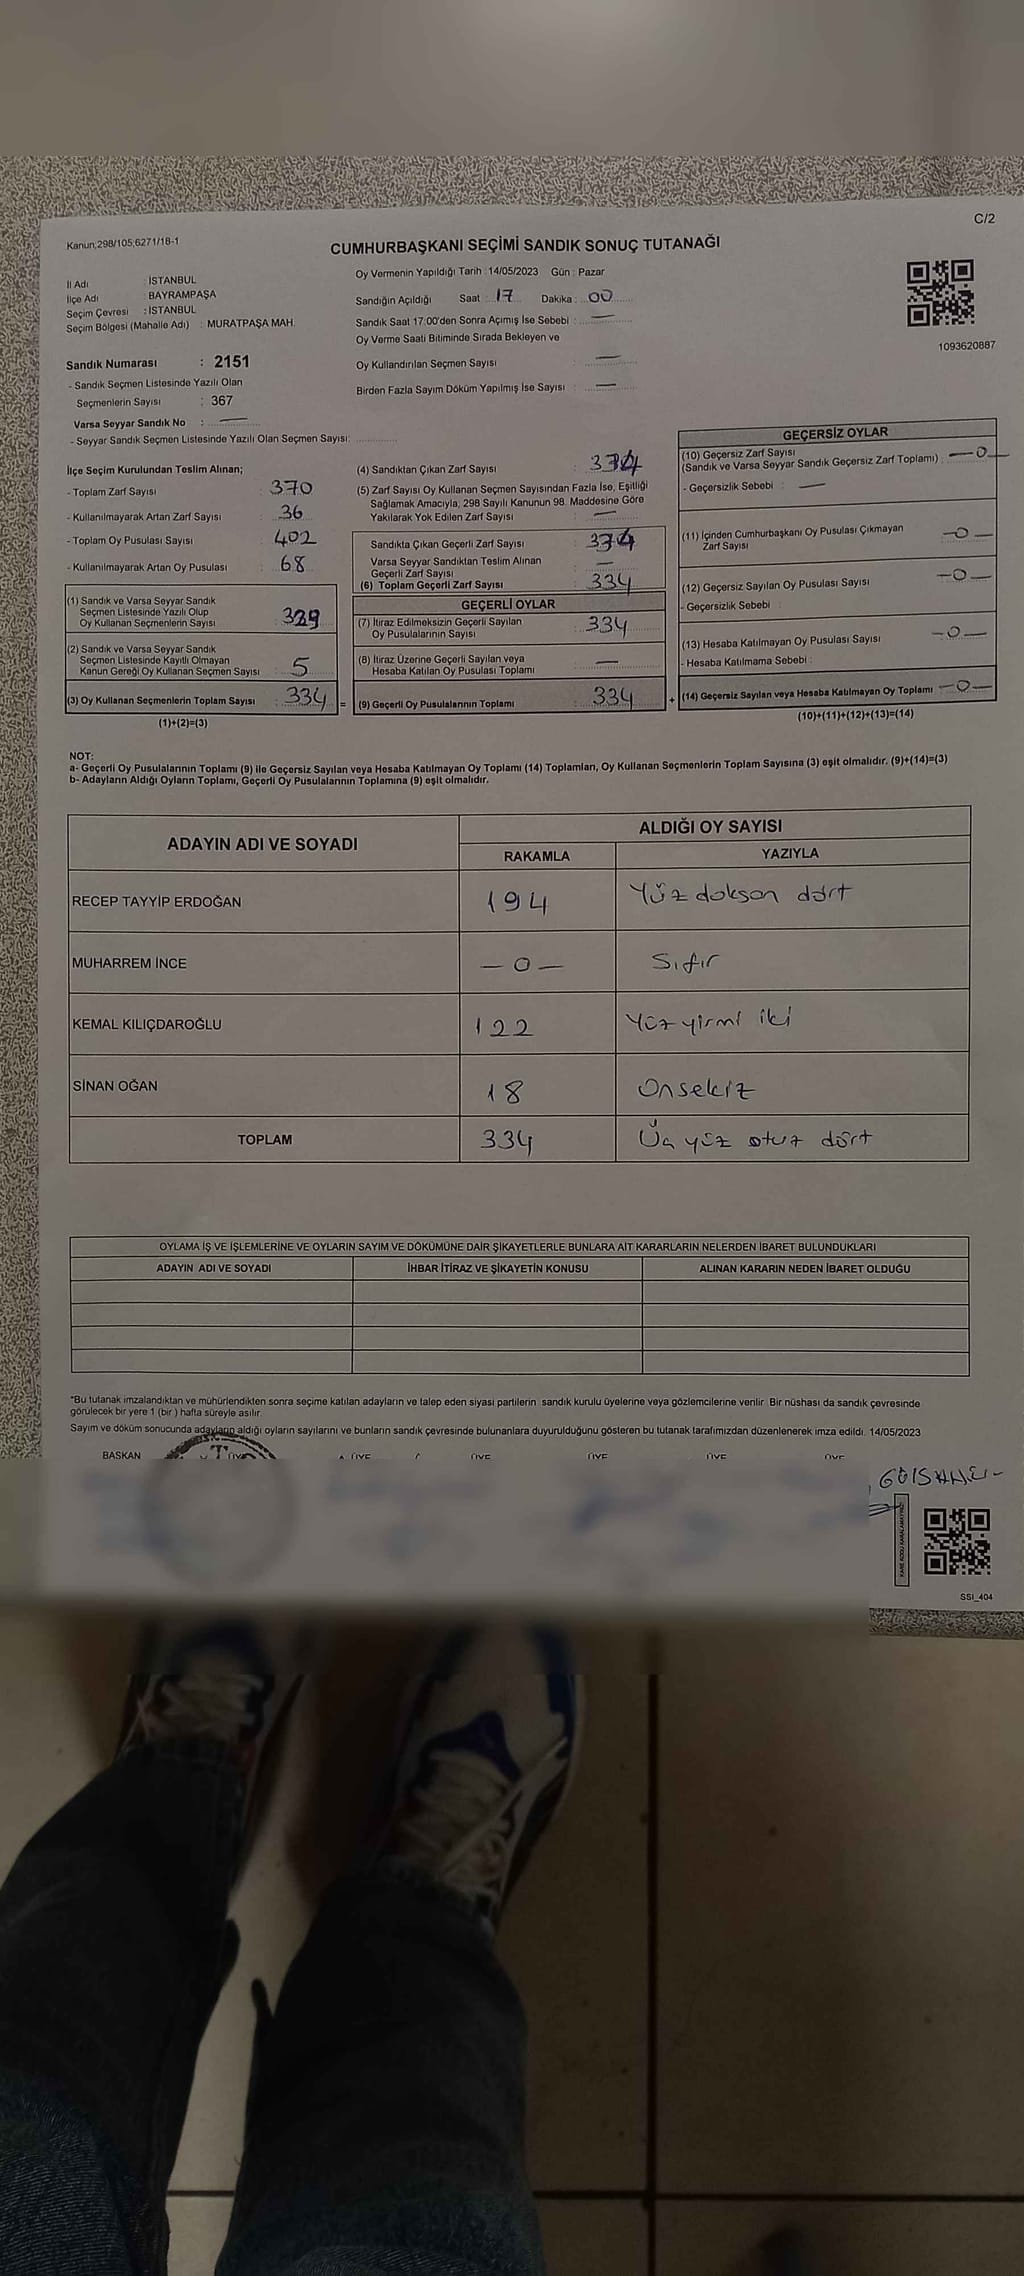 C/2
Kanun,298/105;6271/18-1
CUMHURBAŞKANI SEÇİMİ SANDIK SONUÇ TUTANAĞI
İl Adı : İSTANBUL
İlçe Adı : BAYRAMPAŞA
Seçim Çevresi : İSTANBUL
Seçim Bölgesi (Mahalle Adı) : MURATPAŞA MAH.
Oy Vermenin Yapıldığı Tarih : 14/05/2023 Gün : Pazar
Sandığın Açıldığı Saat : 17 Dakika : 00
Sandık Saat 17:00'den Sonra Açımış İse Sebebi : —
Oy Verme Saati Bitiminde Sırada Bekleyen ve
Oy Kullandırılan Seçmen Sayısı : —
Birden Fazla Sayım Döküm Yapılmış İse Sayısı : —
1093620887
Sandık Numarası : 2151
- Sandık Seçmen Listesinde Yazılı Olan
Seçmenlerin Sayısı : 367
Varsa Seyyar Sandık No : —
- Seyyar Sandık Seçmen Listesinde Yazılı Olan Seçmen Sayısı:
İlçe Seçim Kurulundan Teslim Alınan;
- Toplam Zarf Sayısı : 370
- Kullanılmayarak Artan Zarf Sayısı : 36
- Toplam Oy Pusulası Sayısı : 402
- Kullanılmayarak Artan Oy Pusulası : 68
(1) Sandık ve Varsa Seyyar Sandık
Seçmen Listesinde Yazılı Olup
Oy Kullanan Seçmenlerin Sayısı : 329
(2) Sandık ve Varsa Seyyar Sandık
Seçmen Listesinde Kayıtlı Olmayan
Kanun Gereği Oy Kullanan Seçmen Sayısı : 5
(3) Oy Kullanan Seçmenlerin Toplam Sayısı : 334
(1)+(2)=(3)
(4) Sandıktan Çıkan Zarf Sayısı : 334
(5) Zarf Sayısı Oy Kullanan Seçmen Sayısından Fazla İse, Eşitliği
Sağlamak Amacıyla; 298 Sayılı Kanunun 98. Maddesine Göre
Yakılarak Yok Edilen Zarf Sayısı : —
Sandıkta Çıkan Geçerli Zarf Sayısı : 334
Varsa Seyyar Sandıktan Teslim Alınan
Geçerli Zarf Sayısı : —
(6) Toplam Geçerli Zarf Sayısı : 334
GEÇERLİ OYLAR
(7) İtiraz Edilmeksizin Geçerli Sayılan
Oy Pusulalarının Sayısı : 334
(8) İtiraz Üzerine Geçerli Sayılan veya
Hesaba Katılan Oy Pusulası Toplamı : —
= (9) Geçerli Oy Pusulalarının Toplamı : 334 +
GEÇERSİZ OYLAR
(10) Geçersiz Zarf Sayısı
(Sandık ve Varsa Seyyar Sandık Geçersiz Zarf Toplamı) : —0—
- Geçersizlik Sebebi : —
(11) İçinden Cumhurbaşkanı Oy Pusulası Çıkmayan
Zarf Sayısı —0—
(12) Geçersiz Sayılan Oy Pusulası Sayısı —0—
- Geçersizlik Sebebi :
(13) Hesaba Katılmayan Oy Pusulası Sayısı —0—
- Hesaba Katılmama Sebebi :
(14) Geçersiz Sayılan veya Hesaba Katılmayan Oy Toplamı —0—
(10)+(11)+(12)+(13)=(14)
NOT:
a- Geçerli Oy Pusulalarının Toplamı (9) ile Geçersiz Sayılan veya Hesaba Katılmayan Oy Toplamı (14) Toplamları, Oy Kullanan Seçmenlerin Toplam Sayısına (3) eşit olmalıdır. (9)+(14)=(3)
b- Adayların Aldığı Oyların Toplamı, Geçerli Oy Pusulalarının Toplamına (9) eşit olmalıdır.
ADAYIN ADI VE SOYADI
ALDIĞI OY SAYISI
RAKAMLA YAZIYLA
RECEP TAYYİP ERDOĞAN 194 Yüz doksan dört
MUHARREM İNCE —0— Sıfır
KEMAL KILIÇDAROĞLU 122 Yüz yirmi iki
SİNAN OĞAN 18 Onsekiz
TOPLAM 334 Üç yüz otuz dört
OYLAMA İŞ VE İŞLEMLERİNE VE OYLARIN SAYIM VE DÖKÜMÜNE DAİR ŞİKAYETLERLE BUNLARA AİT KARARLARIN NELERDEN İBARET BULUNDUKLARI
ADAYIN ADI VE SOYADI İHBAR İTİRAZ VE ŞİKAYETİN KONUSU ALINAN KARARIN NEDEN İBARET OLDUĞU
*Bu tutanak imzalandıktan ve mühürlendikten sonra seçime katılan adayların ve talep eden siyasi partilerin sandık kurulu üyelerine veya gözlemcilerine verilir. Bir nüshası da sandık çevresinde
görülecek bir yere 1 (bir ) hafta süreyle asılır.
Sayım ve döküm sonucunda adayların aldığı oyların sayılarını ve bunların sandık çevresinde bulunanlara duyurulduğunu gösteren bu tutanak tarafımızdan düzenlenerek imza edildi. 14/05/2023
BAŞKAN ÜYE ÜYE ÜYE ÜYE ÜYE ÜYE
SSI_404